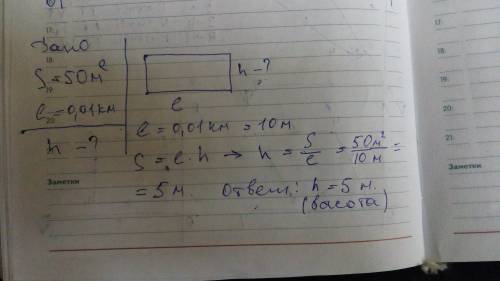 Дано
S = 50 м²
ℓ = 0,01 км
h = ?
h - ?
ℓ
ℓ = 0,01 км = 10 м.
S = ℓ · h → h = S/ℓ = 50 м²/10 м =
= 5 м. Ответ: h = 5 м.
(высота)
Заметки
Заметки
17:
18:
19:
20:
21:
18
19
20